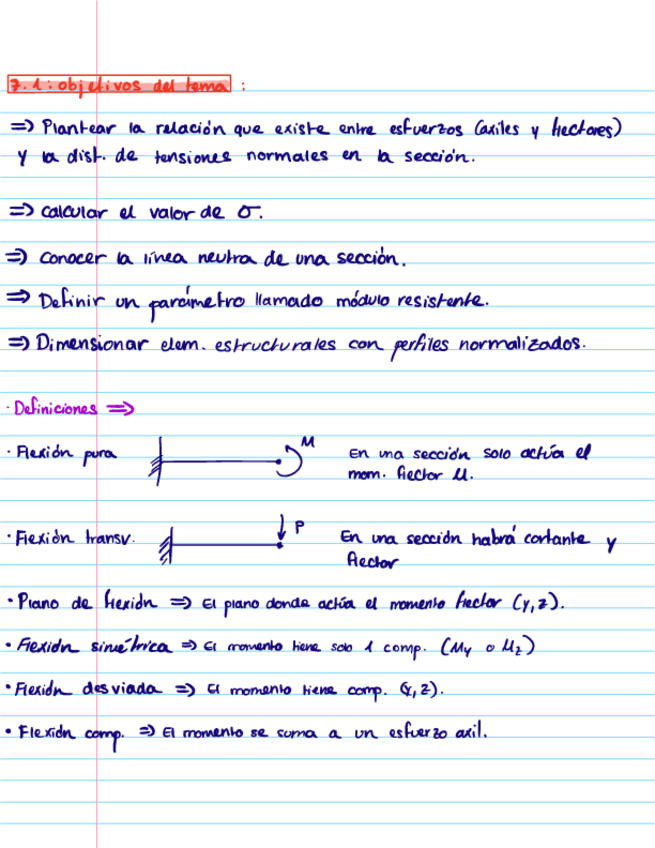 7.1: objetivos del tema :
=> Plantear la relación que existe entre esfuerzos (axiles y flectores)
y la dist. de tensiones normales en la sección.
=> Calcular el valor de σ.
=> Conocer la línea neutra de una sección.
=> Definir un parámetro llamado módulo resistente.
=> Dimensionar elem. estructurales con perfiles normalizados.
· Definiciones =>
· Flexión pura M En una sección solo actúa el
mom. flector M.
· Flexión transv. P En una sección habrá cortante y
flector
• Plano de flexión => El plano donde actúa el momento flector (y,z).
• Flexión simétrica => El momento tiene solo 1 comp. (My o Mz)
• Flexión desviada => El momento tiene comp. (y,z).
• Flexión comp. => El momento se suma a un esfuerzo axil.